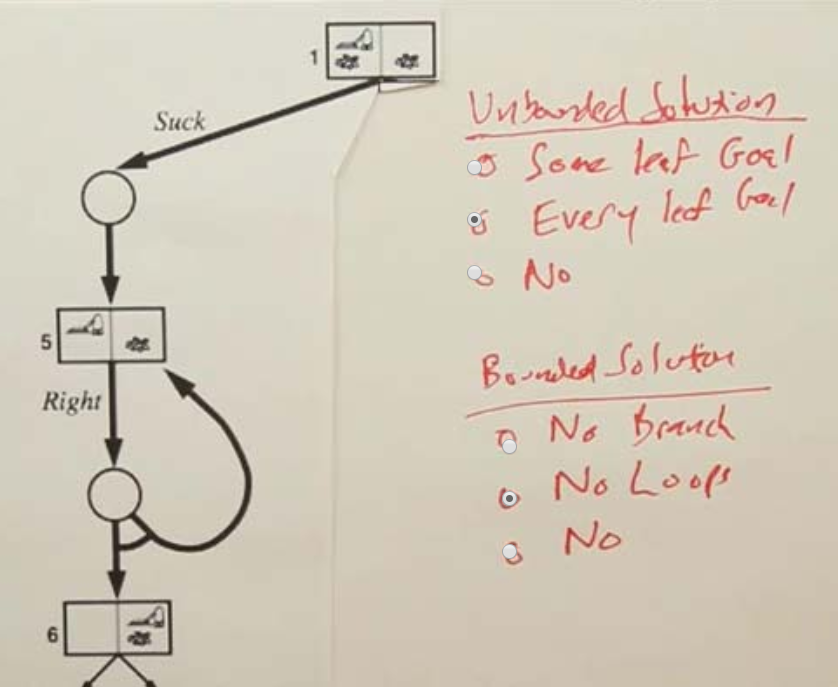 1
Suck
5
Right
6
Unbounded Solution
Some leaf Goal
Every leaf Goal
No
Bounded Solution
No Branch
No Loops
No